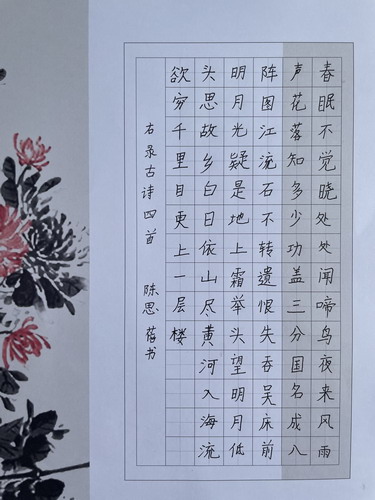 春眠不觉晓处处闻啼鸟夜来风雨
声花落知多少功盖三分国名成八
阵图江流石不转遗恨失吞吴床前
明月光疑是地上霜举头望明月低
头思故乡白日依山尽黄河入海流
欲穷千里目更上一层楼
右录古诗四首 陈思书